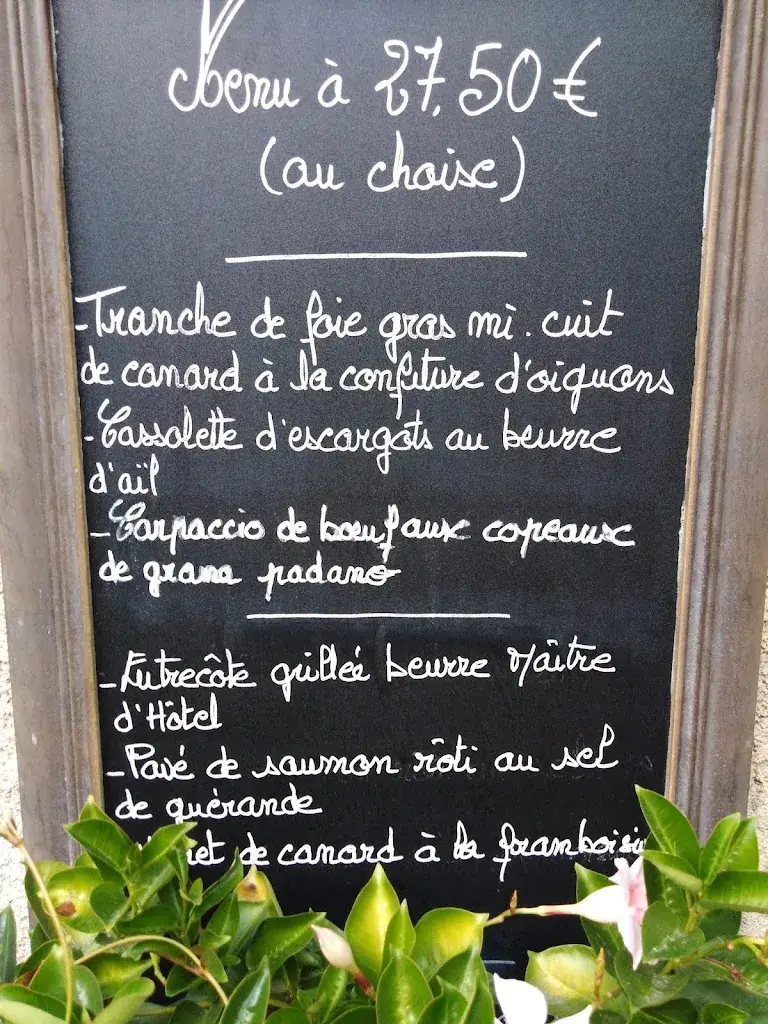 Menu à 27,50 €
(au choise)
-Tranche de foie gras mi. cuit
de canard à la confiture d'oignons
-Cassolette d'escargots au beurre
d'aïl
-Carpaccio de bœuf aux copeaux
de grana padano
-Entrecôte grillée beurre Maître
d'Hôtel
-Pavé de saumon rôti au sel
de guérande
de canard à la